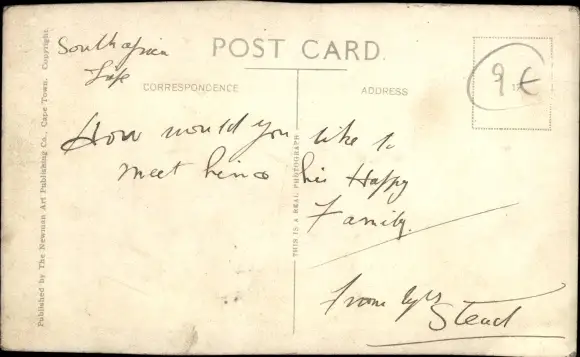 South african
Life
POST CARD.
CORRESPONDENCE
ADDRESS
9 €
How would you like to
meet him & his Happy
Family.
From
Stead
THIS IS A REAL PHOTOGRAPH
Published by The Newman Art Publishing Co., Cape Town. Copyright.